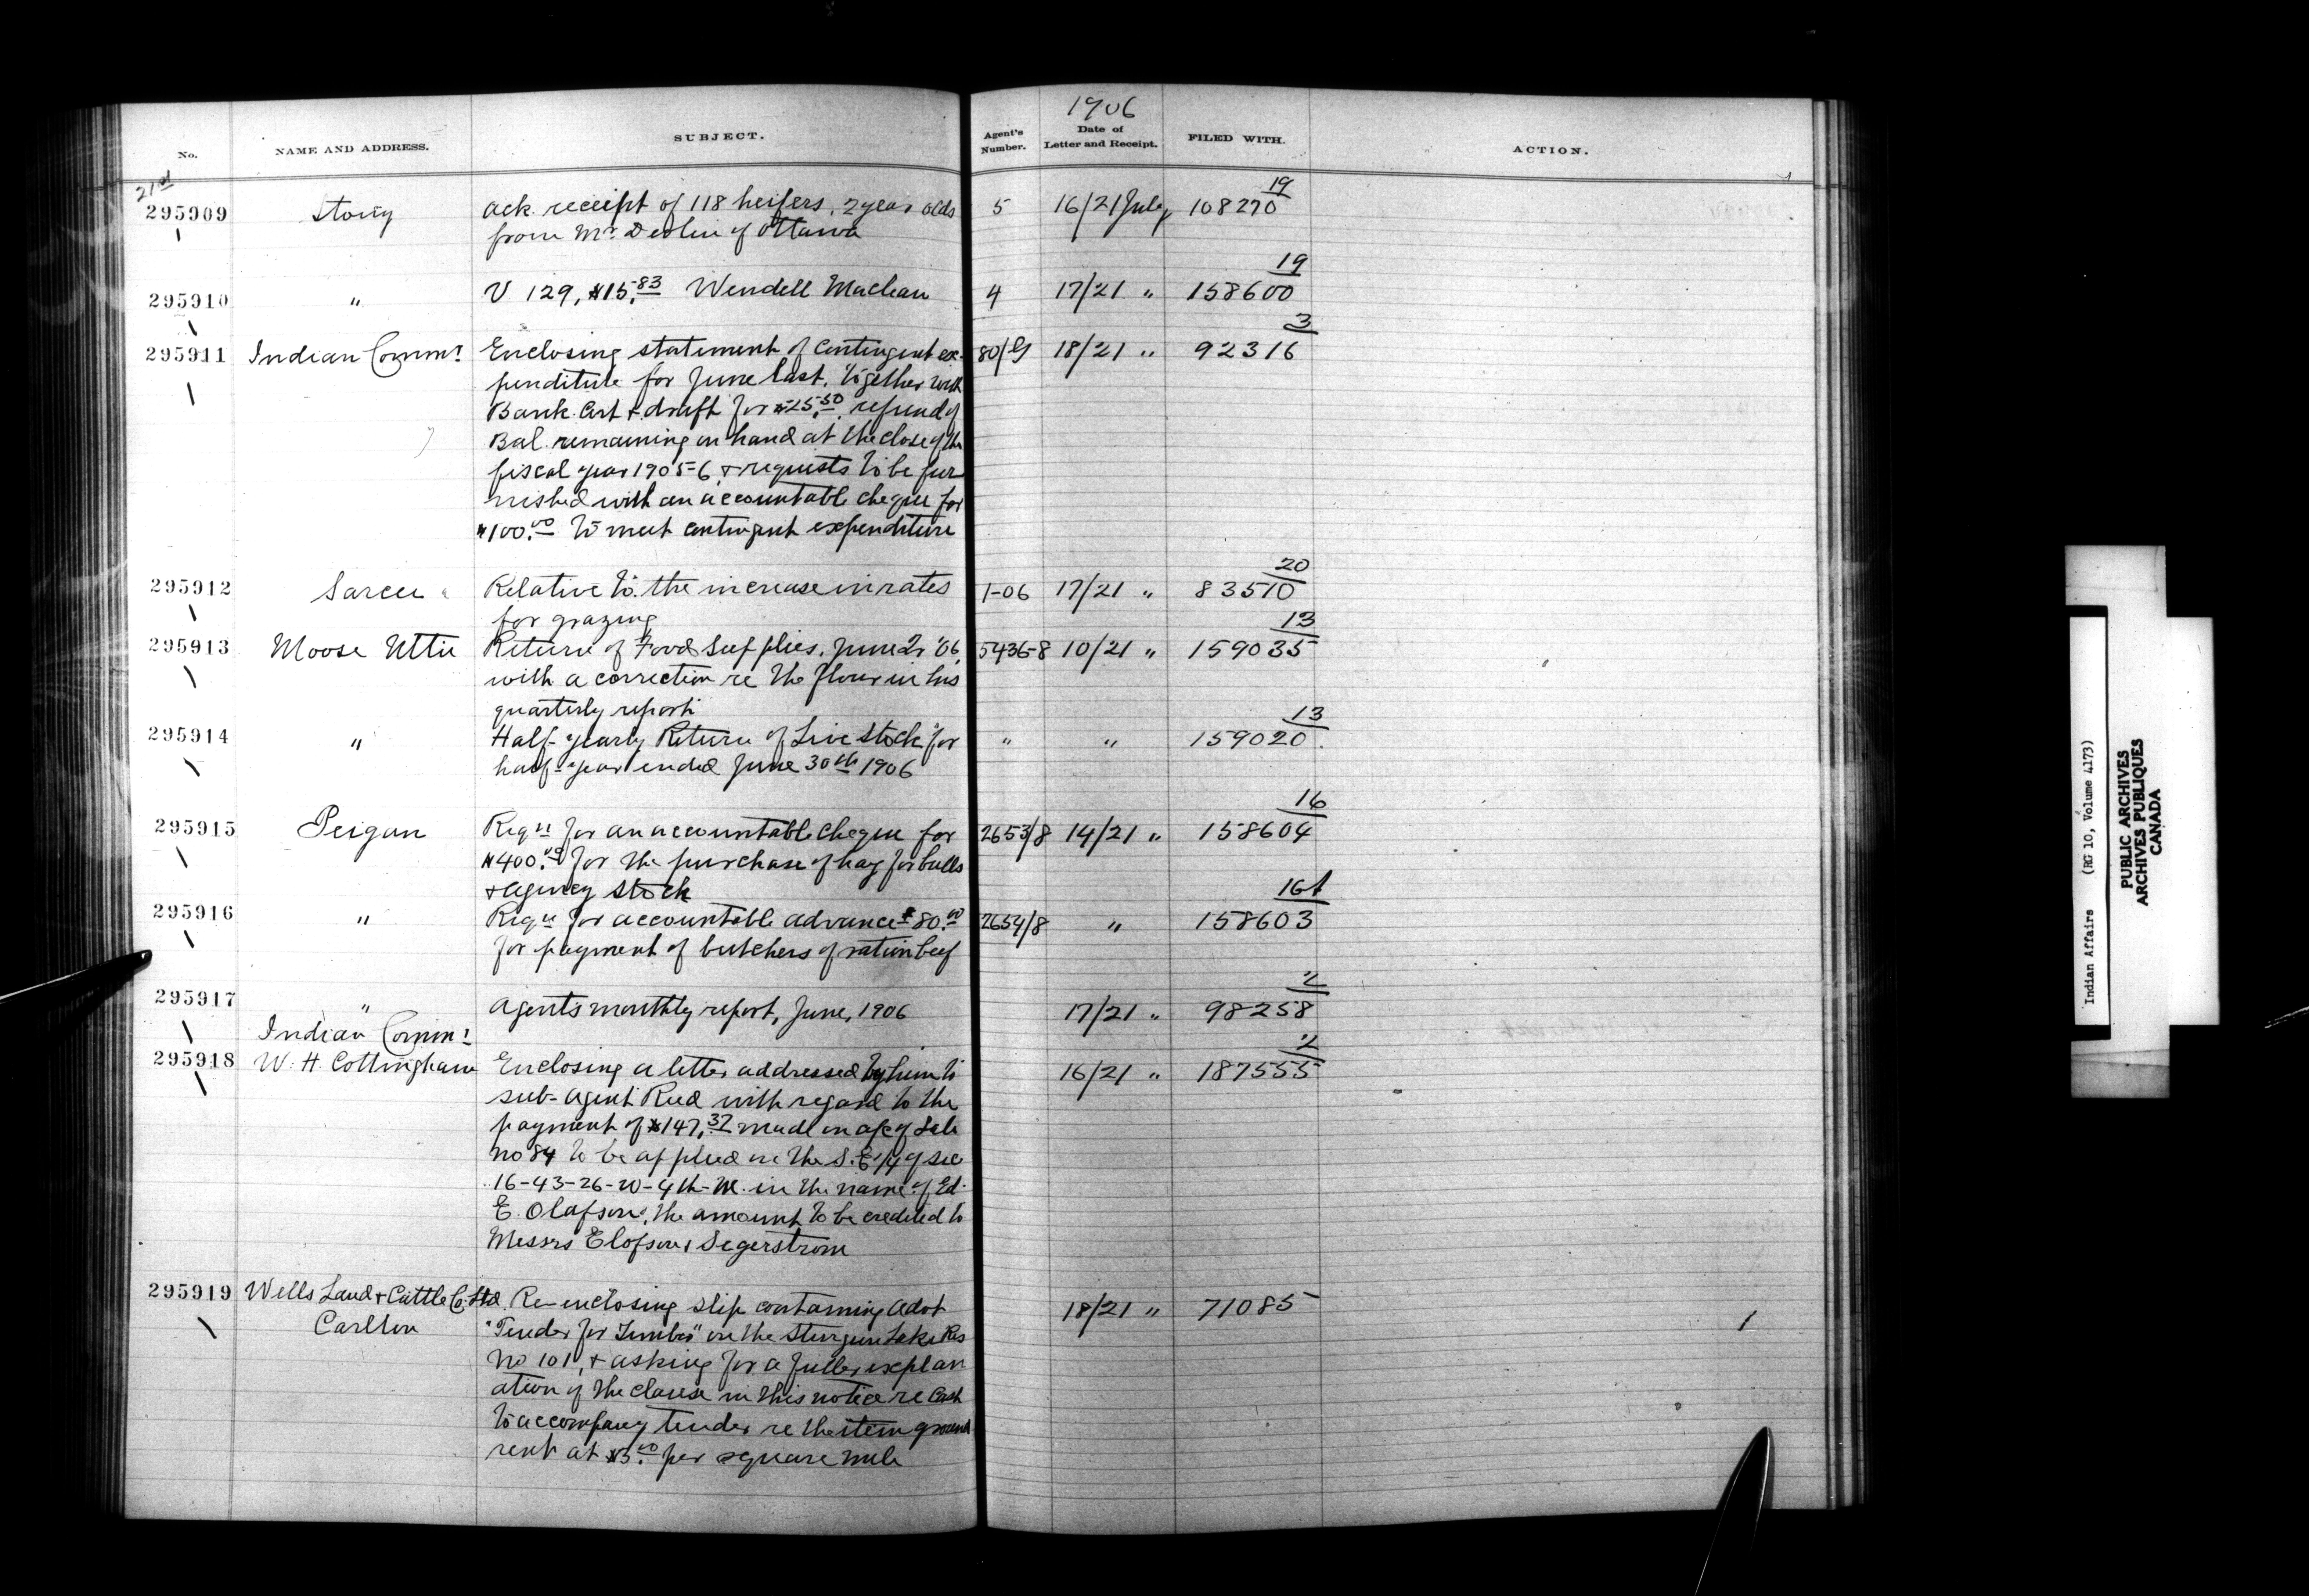 1906
No.
NAME AND ADDRESS.
SUBJECT.
Agent's Number.
Date of Letter and Receipt.
FILED WITH.
ACTION.
21st
19
295909 Stony Ack. receipt of 118 heifers, 2 year olds 5 16/21 July 108270
from Mr. Devlin of Ottawa
19
295910 " V 129, $15.83 Wendell Maclean 4 17/21 " 158600
3
295911 Indian Commr Enclosing statement of Contingent ex- 80/G 18/21 " 92316
penditure for June last, together with
Bank Cert & draft for $25.50, refund of
Bal. remaining on hand at the close of the
fiscal year 1905-6, & requests to be fur
nished with an accountable cheque for
$100.00 to meet contingent expenditure
20
295912 Sarcee Relative to the increase in rates 1-06 17/21 " 83510
for grazing
13
295913 Moose Mtn Return of Food Supplies, June 2r '06, 5436-8 10/21 " 159035
with a correction re the flour in his
quarterly report
13
295914 " Half-yearly Return of Live Stock for " " 159020.
half-year ended June 30th 1906
16
295915 Peigan Reqn for an accountable cheque for 2653/8 14/21 " 158604
$400.00 for the purchase of hay for bulls
& agency stock
161
295916 " Reqn for accountable advance $80.00 2654/8 " 158603
for payment of butchers of ration beef
2
295917 " Agent's monthly report, June, 1906 17/21 " 98258
Indian Commr
2
295918 W. H. Cottingham Enclosing a letter addressed by him to 16/21 " 187555
sub-agent Reed with regard to the
payment of $147.37 made on a/c of Sale
No 84 to be applied on the S.E 1/4 of sec
16-43-26-W-4th-M. in the name of Ed.
E. Olafson, the amount to be credited to
Messrs Elofson & Segerstrom
295919 Wells Land & Cattle Co. Ltd. Re-enclosing slip containing advt 18/21 " 71085
Carlton "Tender for Timber" on the Sturgeon Lake Res
No 101, & asking for a fuller explan
ation of the clause in this notice re Cash
to accompany tender re the item ground
rent at $3.00 per square mile
Indian Affairs (RG 10, Volume 4173)
PUBLIC ARCHIVES
ARCHIVES PUBLIQUES
CANADA